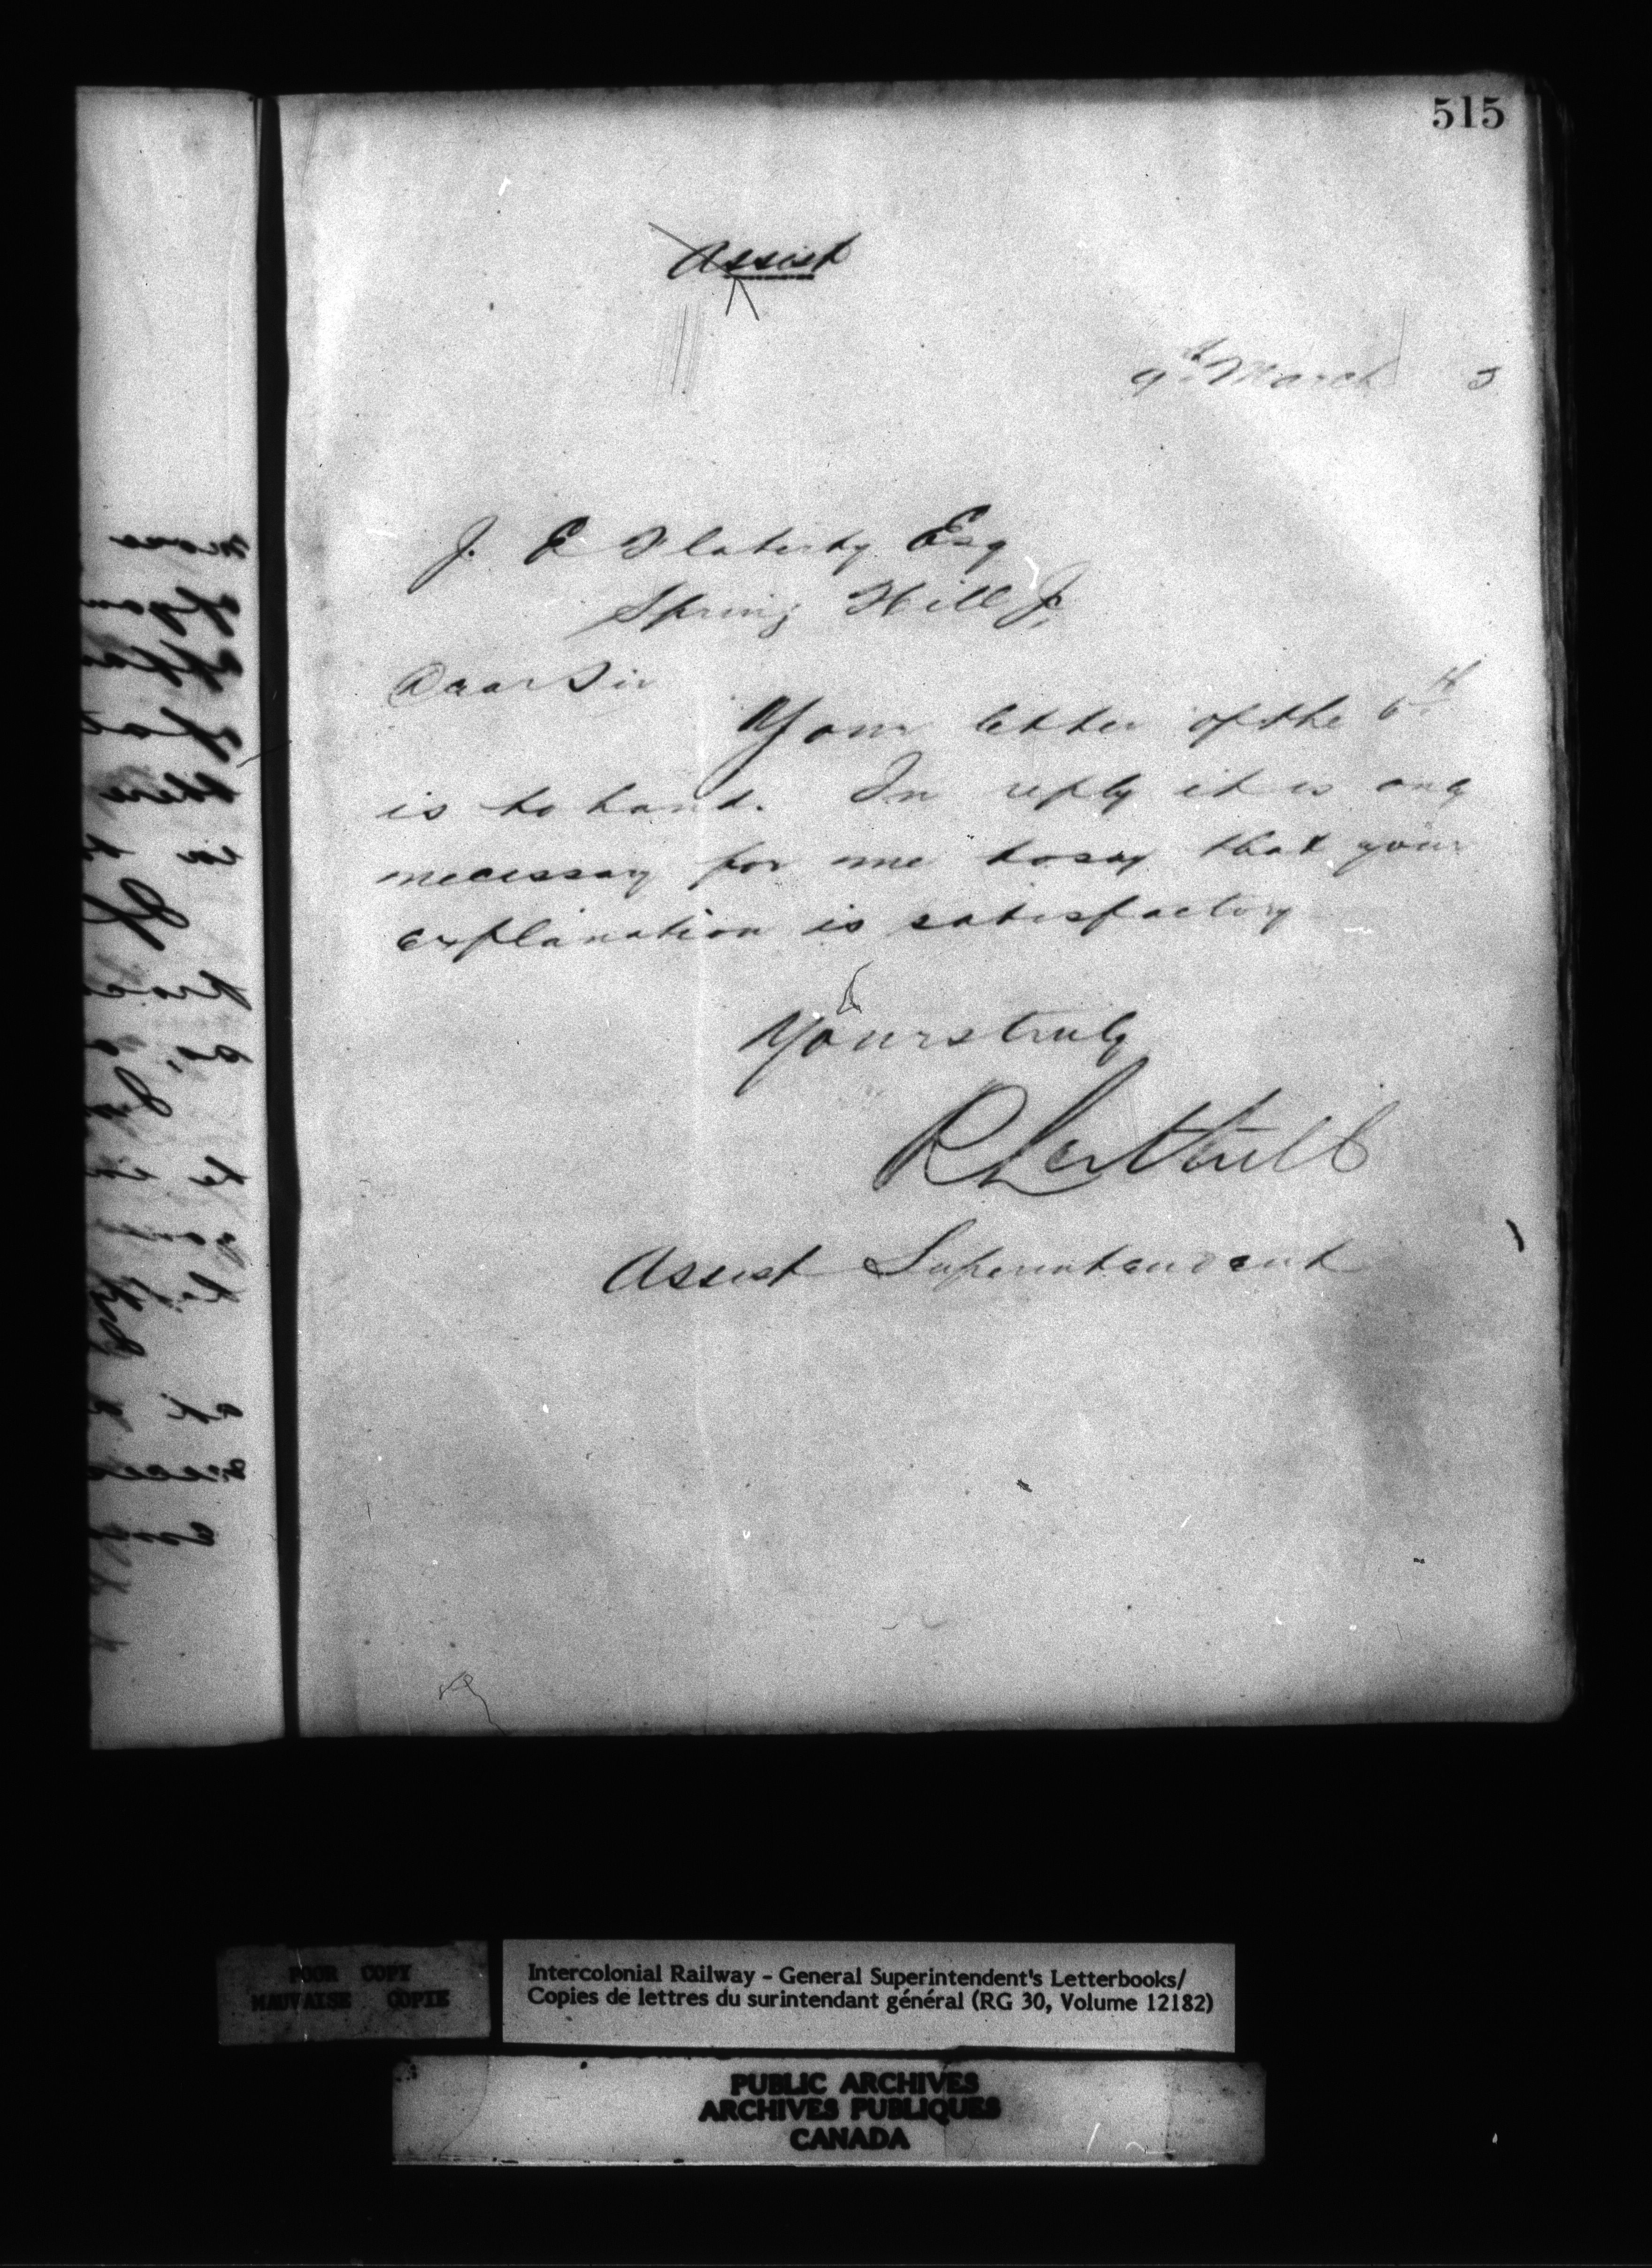 515
Assist
9th March 3
J. E Flaherty Esq
Spring Hill Jc,
Dear Sir
Your letter of the 6th
is to hand. In reply it is only
necessary for me to say that your
explanation is satisfactory
Yours truly
Assist Superintendent
POOR COPY
MAUVAISE COPIE
Intercolonial Railway - General Superintendent's Letterbooks/
Copies de lettres du surintendant général (RG 30, Volume 12182)
PUBLIC ARCHIVES
ARCHIVES PUBLIQUES
CANADA